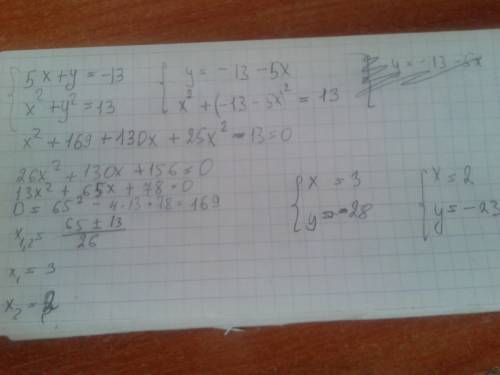 { 5x + y = -13
x² + y² = 13
{ y = -13 - 5x
x² + (-13 - 5x)² = 13
y = -13 - 5x
x² + 169 + 130x + 25x² - 13 = 0
26x² + 130x + 156 = 0
13x² + 65x + 78 = 0
D = 65² - 4·13·78 = 169
x₁,₂ = (65 ± 13)/26
x₁ = 3
x₂ = 2
{ x = 3
y = -28
{ x = 2
y = -23